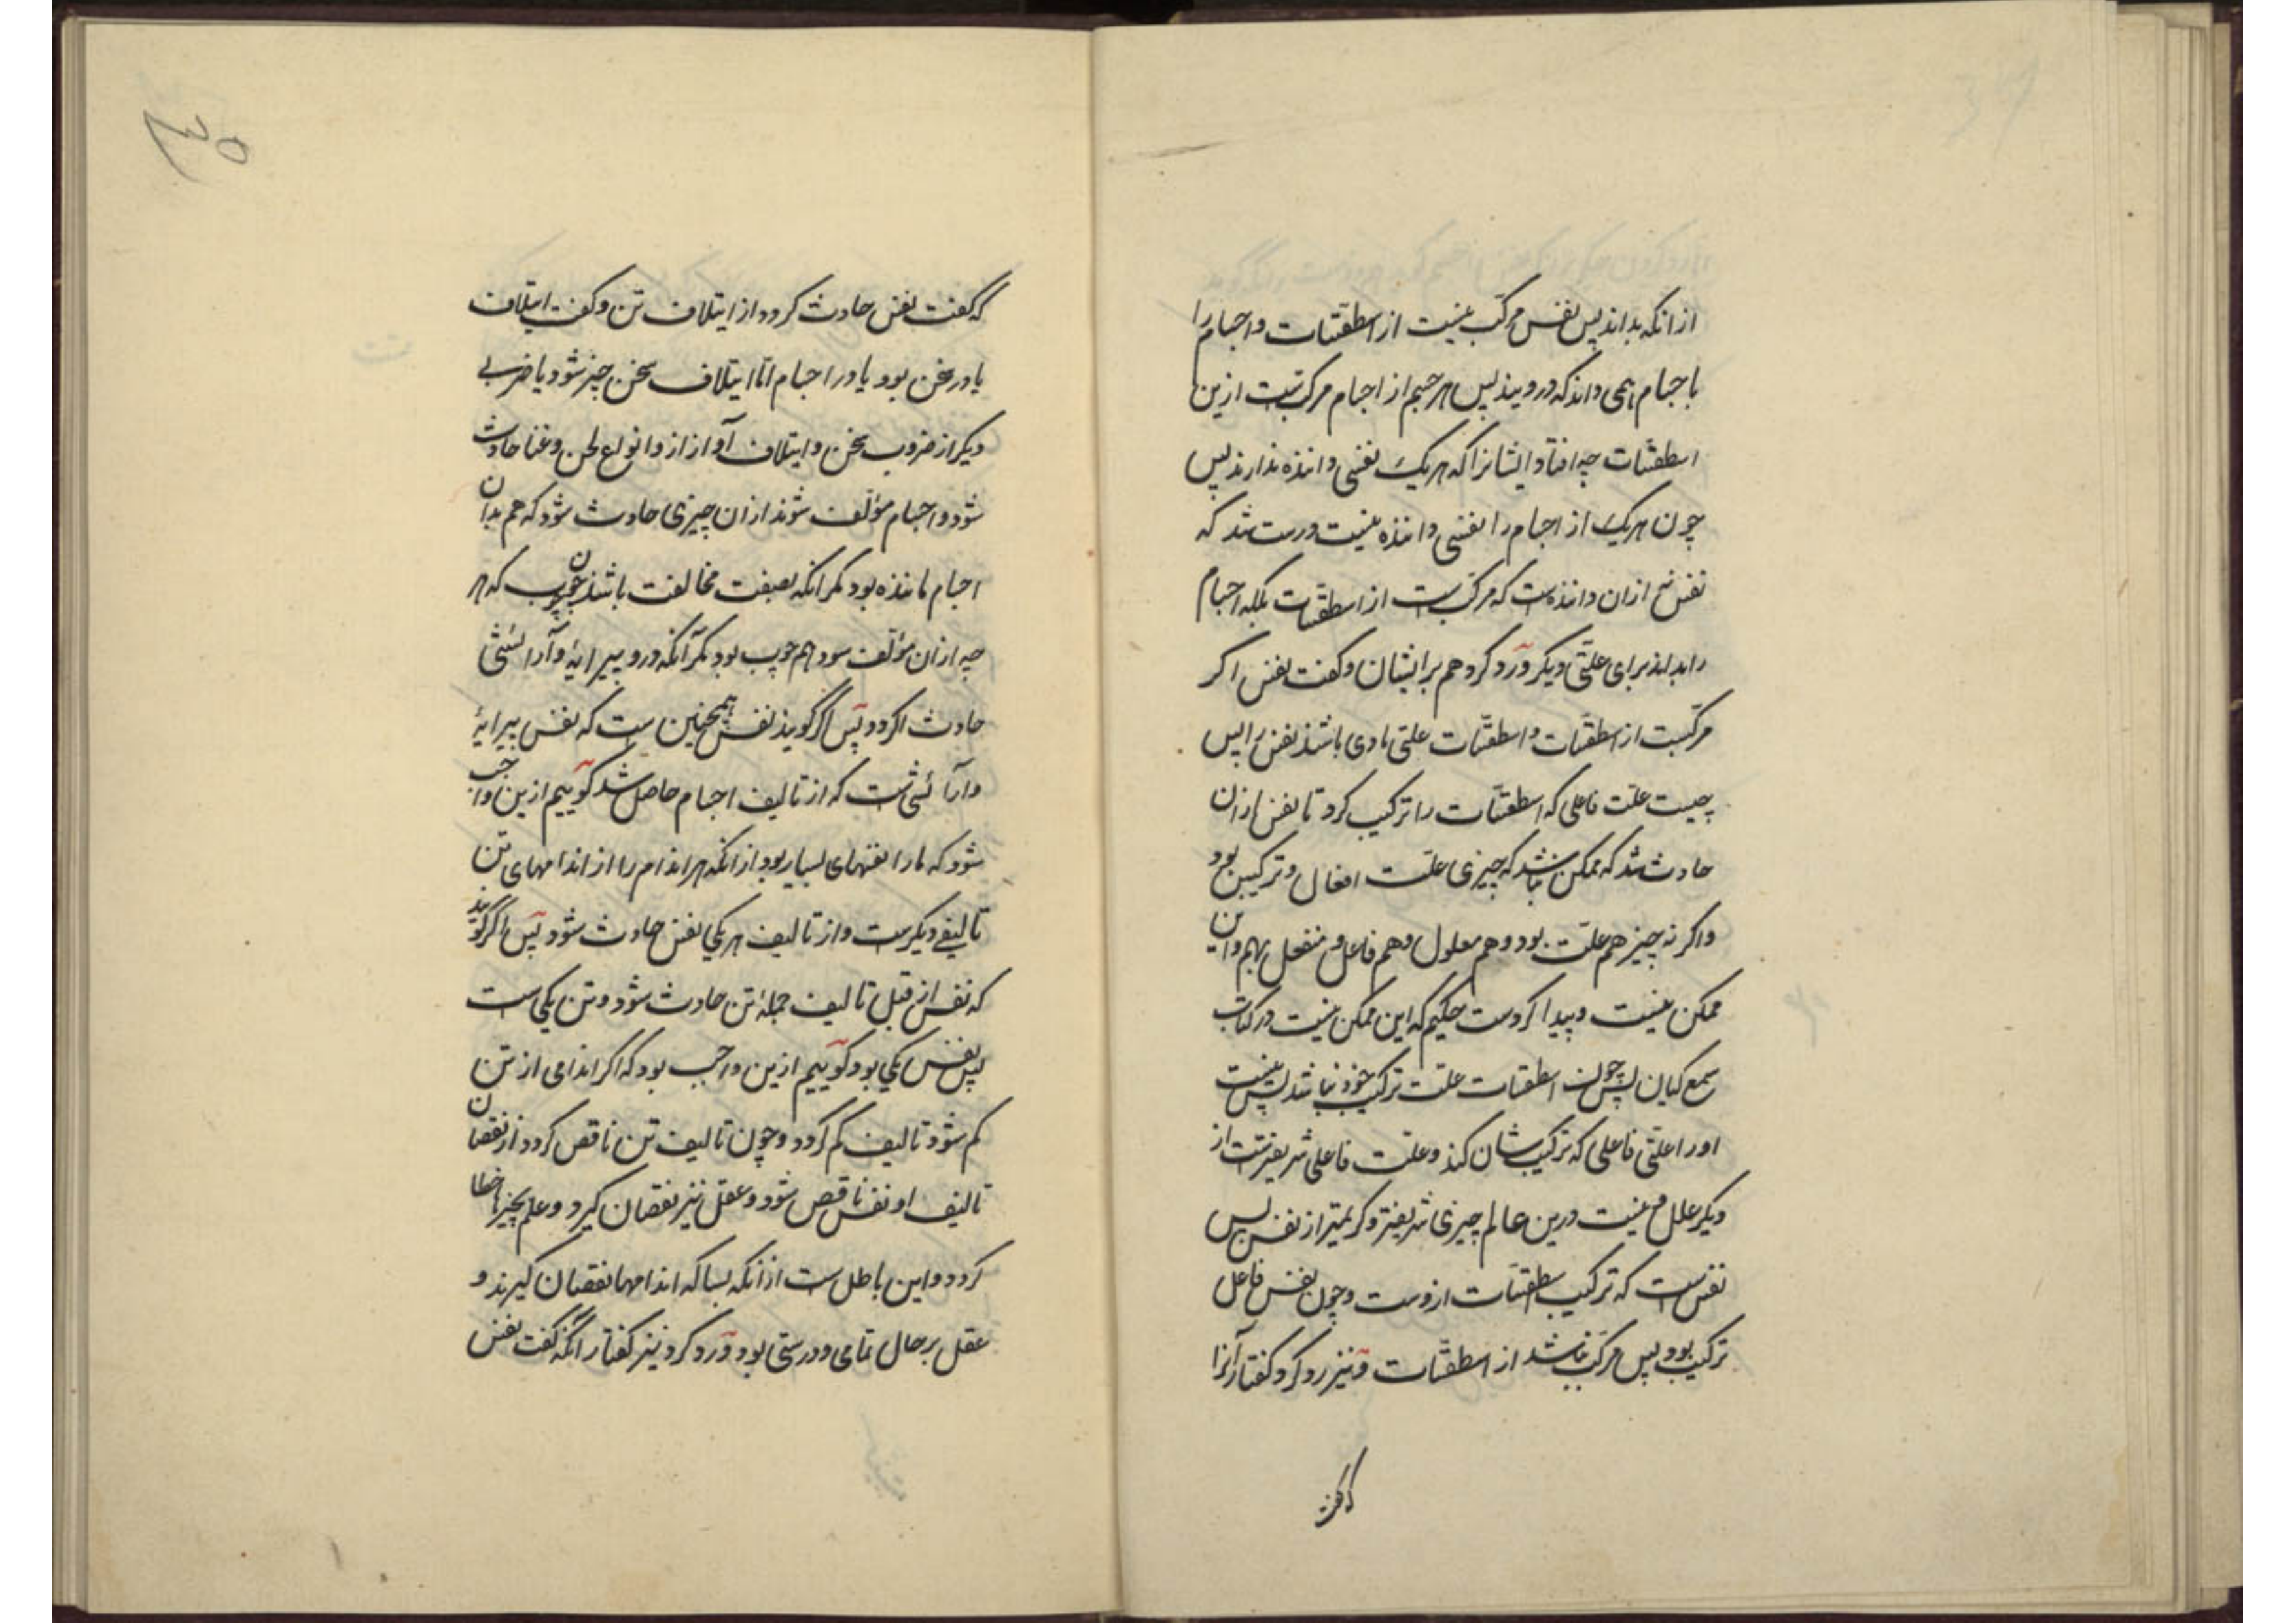 از انکه بداند پس نفس مرکب نیست از اسطقسات و اجسام را
باجسام همی داند که درویند پس هر جسم از اجسام مرکبست ازین
اسطقسات چه افتاد ایشانرا که هر یک نفسی داننده ندارند پس
چون هر یک از اجسام را نفسی داننده نیست درست شد که
نفس نه ازان داننده‌ست که مرکب‌ست از اسطقسات بلکه اجسام
را بداند برای علتی دیگر و رد کرد هم بر ایشان و گفت نفس اگر
مرکبست از اسطقسات و اسطقسات علتی مادی باشند نفس را پس
چیست علت فاعلی که اسطقسات را ترکیب کرد تا نفس ازان
حادث شد که ممکن نباشد که چیزی علت افعال و ترکیبش بود
واگر نه چیز هم علت بود و هم معلول و هم فاعل و منفعل بهم و این
ممکن نیست و پیدا کردست حکیم که این ممکن نیست در کتاب
سمع کیان پس چون اسطقسات علت ترکیب خود نباشد پس نیست
او را علتی فاعلی که ترکیب شان کند و علت فاعلی شریفترست از
دیگر علل و نیست درین عالم چیزی شریفتر و کریمتر از نفس پس
نفس‌ست که ترکیب اسطقسات ازوست و چون نفس فاعل
ترکیب بود پس مرکب نباشد از اسطقسات و نیز رد کرد گفتار آنرا
که گفت
۳۵
که گفت نفس حادث گردد از ایتلاف تن و گفت ایتلاف
یا در سخن بود یا در اجسام اما ایتلاف سخن چیز شود یا ضربی
دیگر از ضروب سخن و ایتلاف آواز از و انواع لحن و غنا حادث
شود و اجسام مؤلف شوند ازان چیزی حادث شود که هم بدان
اجسام ماننده بود مگر انکه بصفت مخالفت باشد چون چوب که هر
چه ازان مؤلف شود هم چوب بود مگر آنکه درو پیرایه و آرائشی
حادث گردد پس اگر گویند نفس همچنین ست که نفس پیرایهٔ
وآرائشی‌ست که از تالیف اجسام حاصل شد گوییم ازین واجب
شود که ما را نفسهای بسیار بود از انکه هر اندام را از اندامهای تن
تالیفی دیگرست و از تالیف هر یکی نفس حادث شود پس اگر گویند
که نفس از قبل تالیف جملهٔ تن حادث شود و تن یکی ست
پس نفس یکی بود گوییم ازین واجب بود که اگر اندامی از تن
کم شود تالیف کم گردد و چون تالیف تن ناقص گردد از نقصان
تالیف او نفس ناقص شود و عقل نیز نقصان گیرد و علم بچیزها خطا
گردد و این باطل ست از انکه بسا که اندامها نقصان گیرند و
عقل بر حال تمامی و درستی بود و رد کرد نیز گفتار انکه گفت نفس